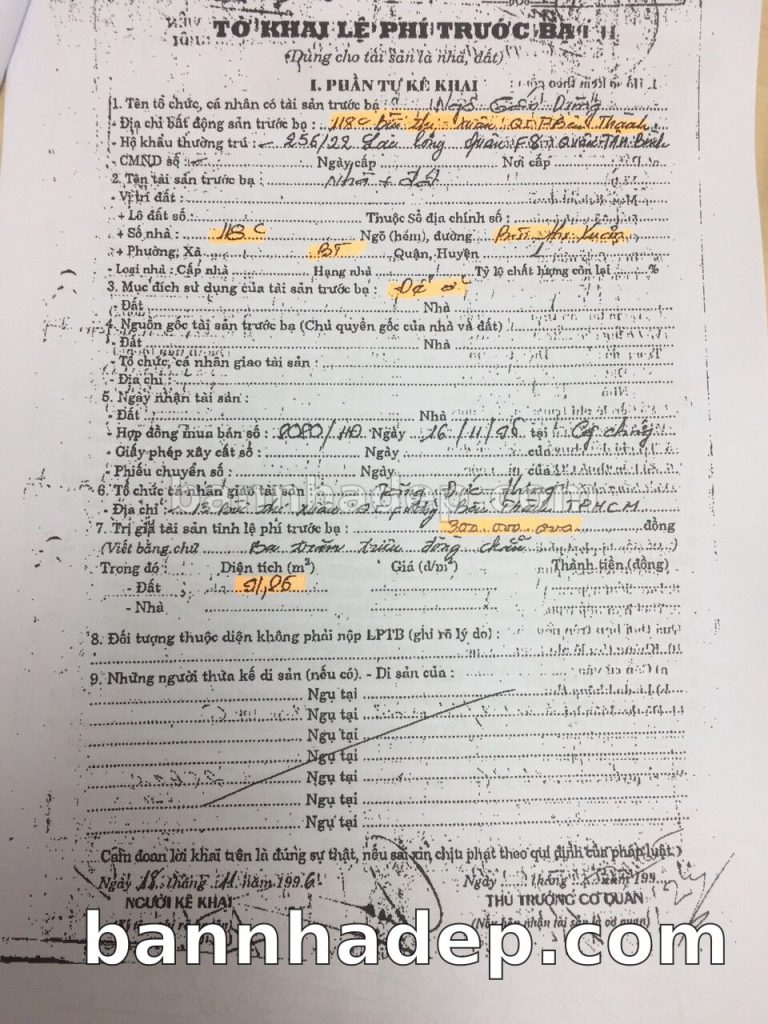 TỜ KHAI LỆ PHÍ TRƯỚC BẠ
(Dùng cho tài sản là nhà, đất)
I. PHẦN TỰ KÊ KHAI
1. Tên tổ chức, cá nhân có tài sản trước bạ : Ngô
- Địa chỉ bất động sản trước bạ : 118C Bùi Thị Xuân Q1 F Bến Thành
- Hộ khẩu thường trú : 256/22 Lạc Long Quân F8 Quận Tân Bình
- CMND số Ngày cấp Nơi cấp
2. Tên tài sản trước bạ : Nhà + đất
- Vị trí đất:
+ Lô đất số: Thuộc Sổ địa chính số :
+ Số nhà : 118C Ngõ (hẻm), đường Bùi Thị Xuân
+ Phường, Xã BT Quận, Huyện 1
- Loại nhà : Cấp nhà Hạng nhà Tỷ lệ chất lượng còn lại %
3. Mục đích sử dụng của tài sản trước bạ : Để ở
- Đất Nhà
4. Nguồn gốc tài sản trước bạ (Chủ quyền gốc của nhà và đất)
- Đất Nhà
- Tổ chức, cá nhân giao tài sản :
- Địa chỉ :
5. Ngày nhận tài sản :
- Đất Nhà
- Hợp đồng mua bán số : /HĐ Ngày 16/11/96 tại chứng
- Giấy phép xây cất số : Ngày của
- Phiếu chuyển số : Ngày của
6. Tổ chức cá nhân giao tài sản Đức
- Địa chỉ : Bùi Thị Xuân Q1 phường Bến Thành TPHCM
7. Trị giá tài sản tính lệ phí trước bạ : 300.000.000 đồng
(Viết bằng chữ Ba trăm triệu đồng chẵn )
Trong đó : Diện tích (m²) Giá (đ/m²) Thành tiền (đồng)
- Đất
- Nhà
8. Đối tượng thuộc diện không phải nộp LPTB (ghi rõ lý do) :
9. Những người thừa kế di sản (nếu có). - Di sản của :
Ngụ tại
Ngụ tại
Ngụ tại
Ngụ tại
Ngụ tại
Ngụ tại
Ngụ tại
Cam đoan lời khai trên là đúng sự thật, nếu sai xin chịu phạt theo qui định của pháp luật.
Ngày 18 tháng 11 năm 1996 Ngày tháng năm 199
NGƯỜI KÊ KHAI THỦ TRƯỞNG CƠ QUAN
(Nếu bên nhận tài sản là cơ quan)
bannhadep.com
bannhadep.com